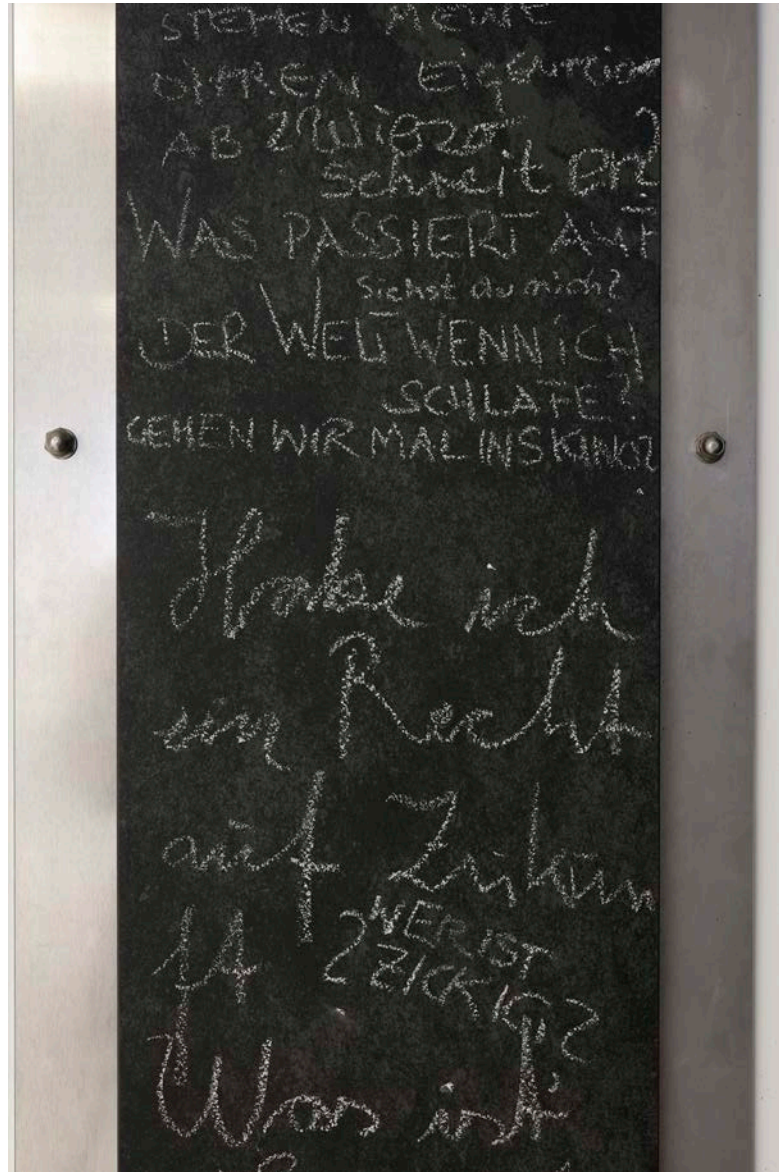 STEHEN MEINE
OHREN Eigentlich
AB ? Wieso
schreit ER?
WAS PASSIERT AUF
Siehst du mich?
DER WELT WENN ICH
SCHLAFE?
GEHEN WIR MAL INS KINO?
Habe ich
ein Recht
auf Zukun
ft ?
WER IST
ZICK
Was ist